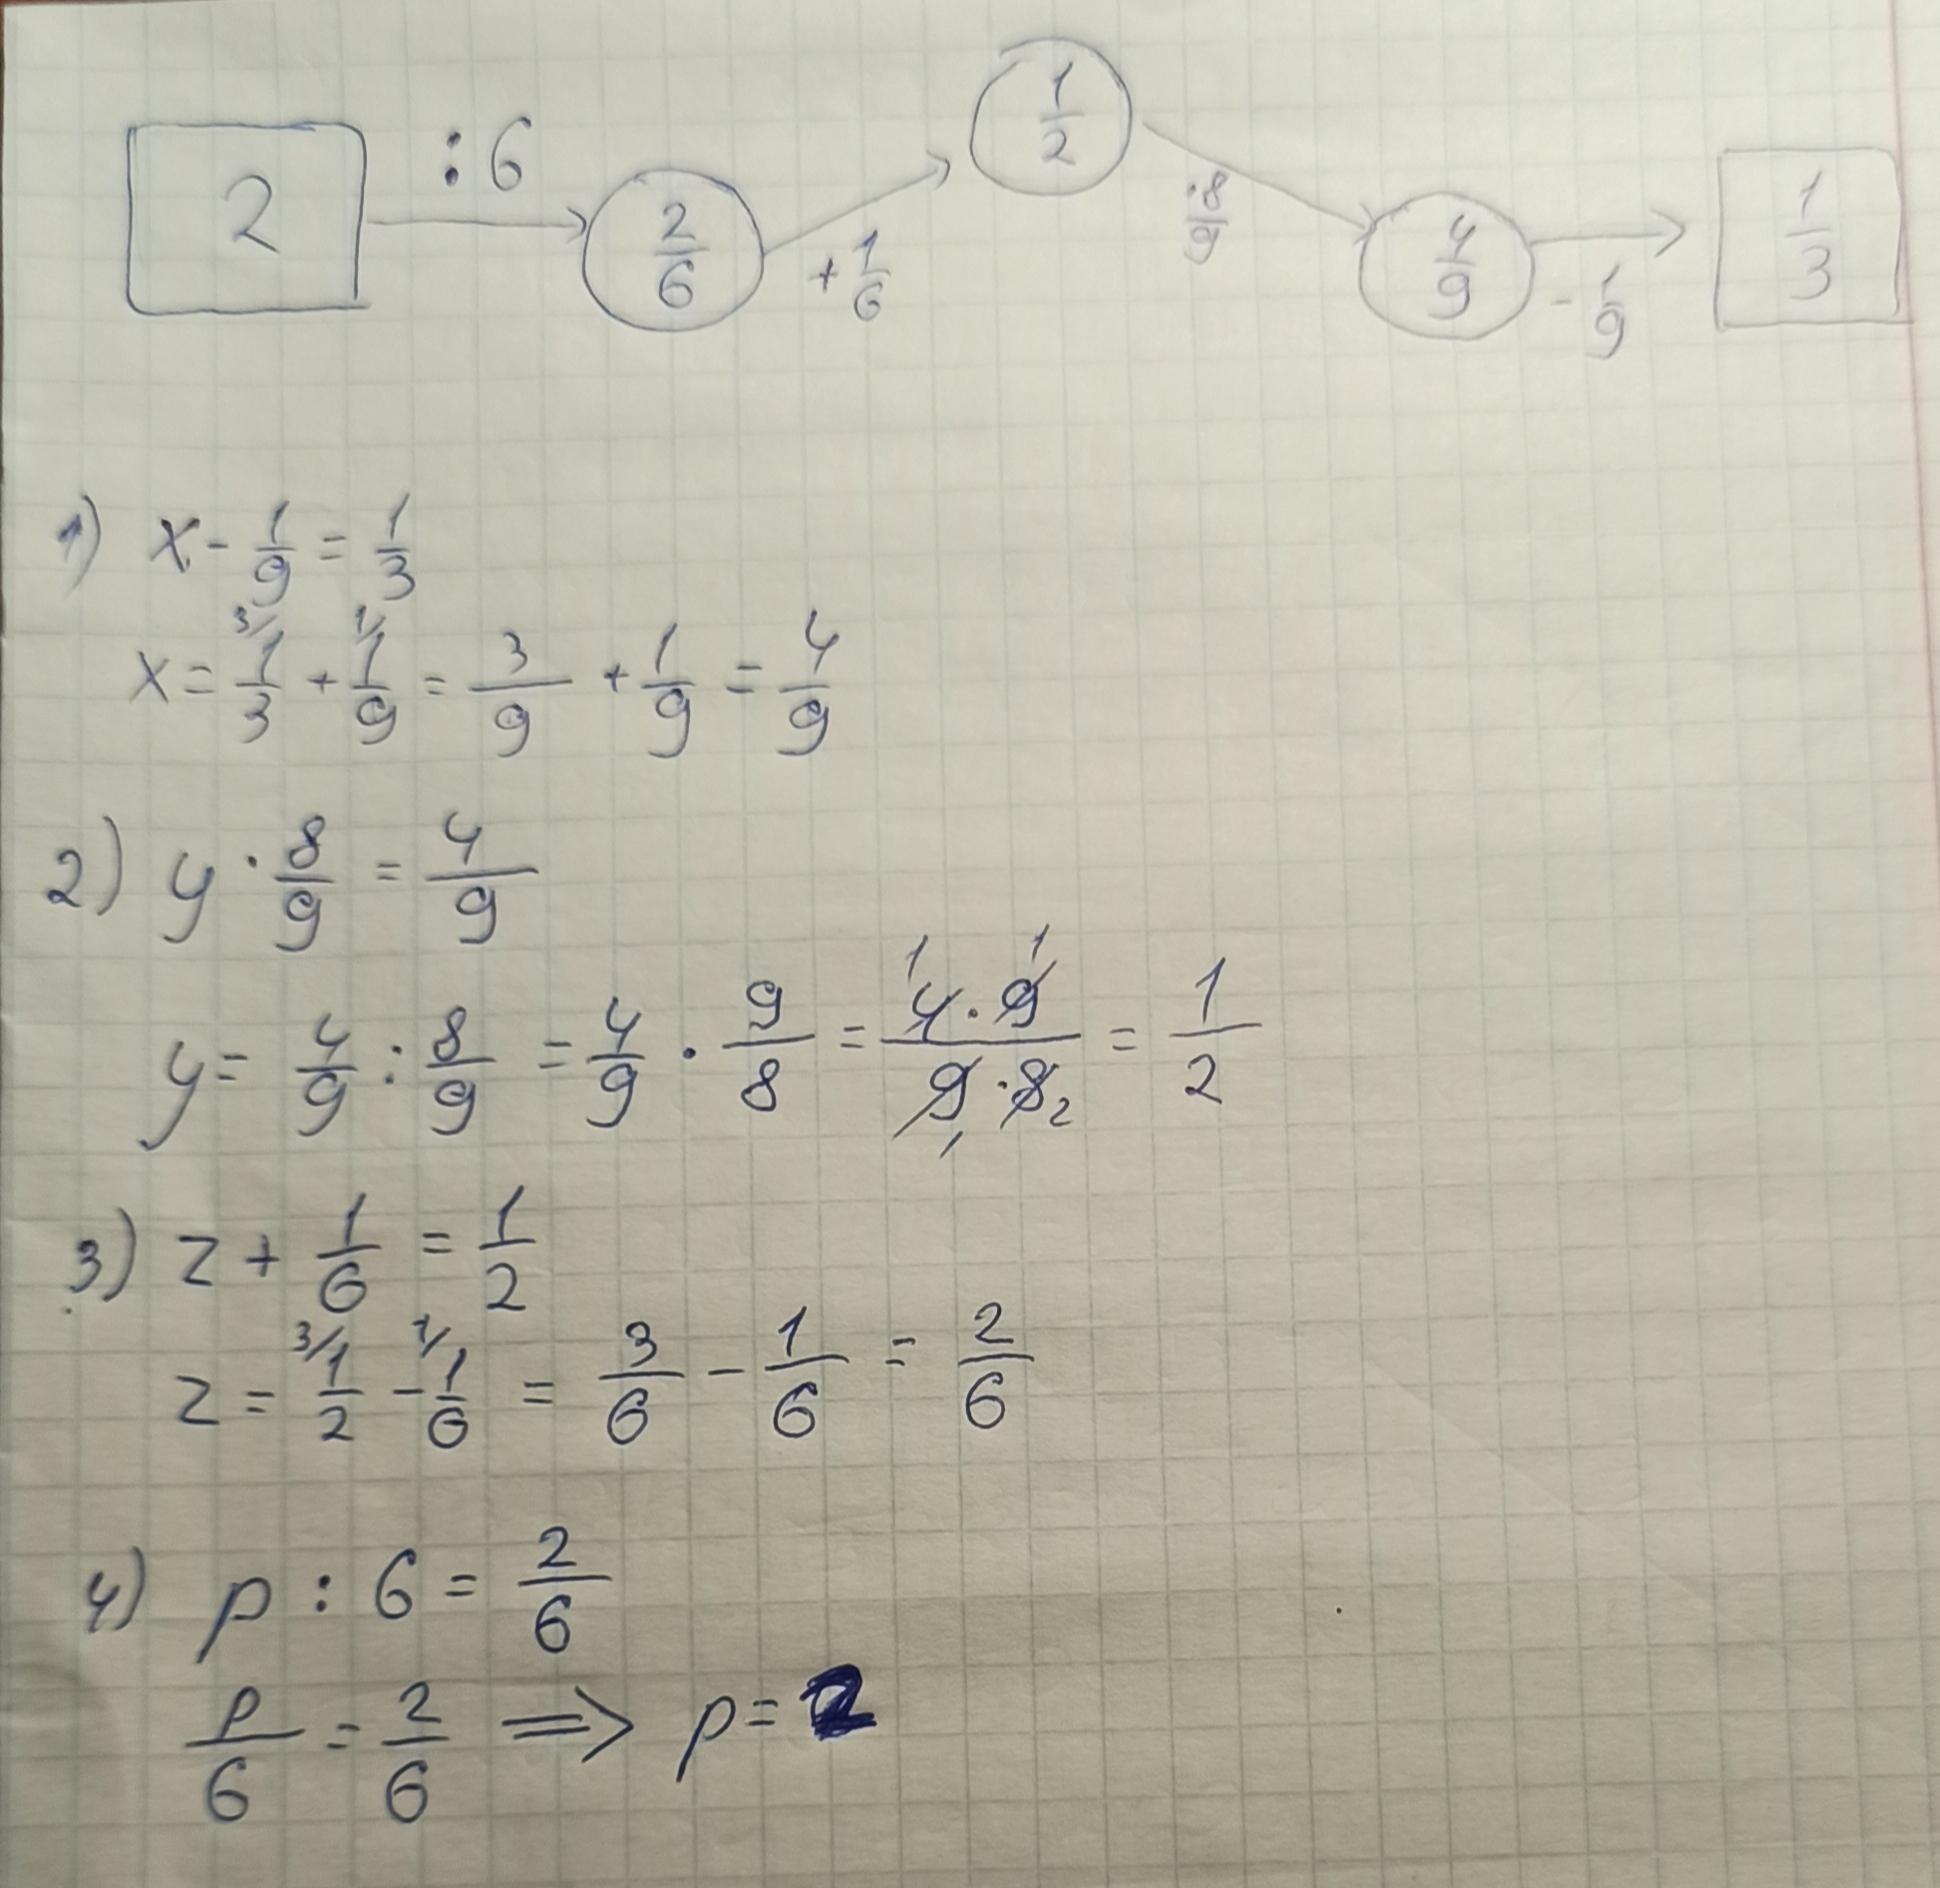 2 :6 2/6 +1/6 1/2 ·8/9 4/9 -1/9 1/3
1) x - 1/9 = 1/3
x = 3/ 1/3 + 1/ 1/9 = 3/9 + 1/9 = 4/9
2) y · 8/9 = 4/9
y = 4/9 : 8/9 = 4/9 · 9/8 = 1 1 4·9/9·8 1 2 = 1/2
3) z + 1/6 = 1/2
z = 3/ 1/2 - 1/ 1/6 = 3/6 - 1/6 = 2/6
4) p : 6 = 2/6
p/6 = 2/6 ⇒ p = 2